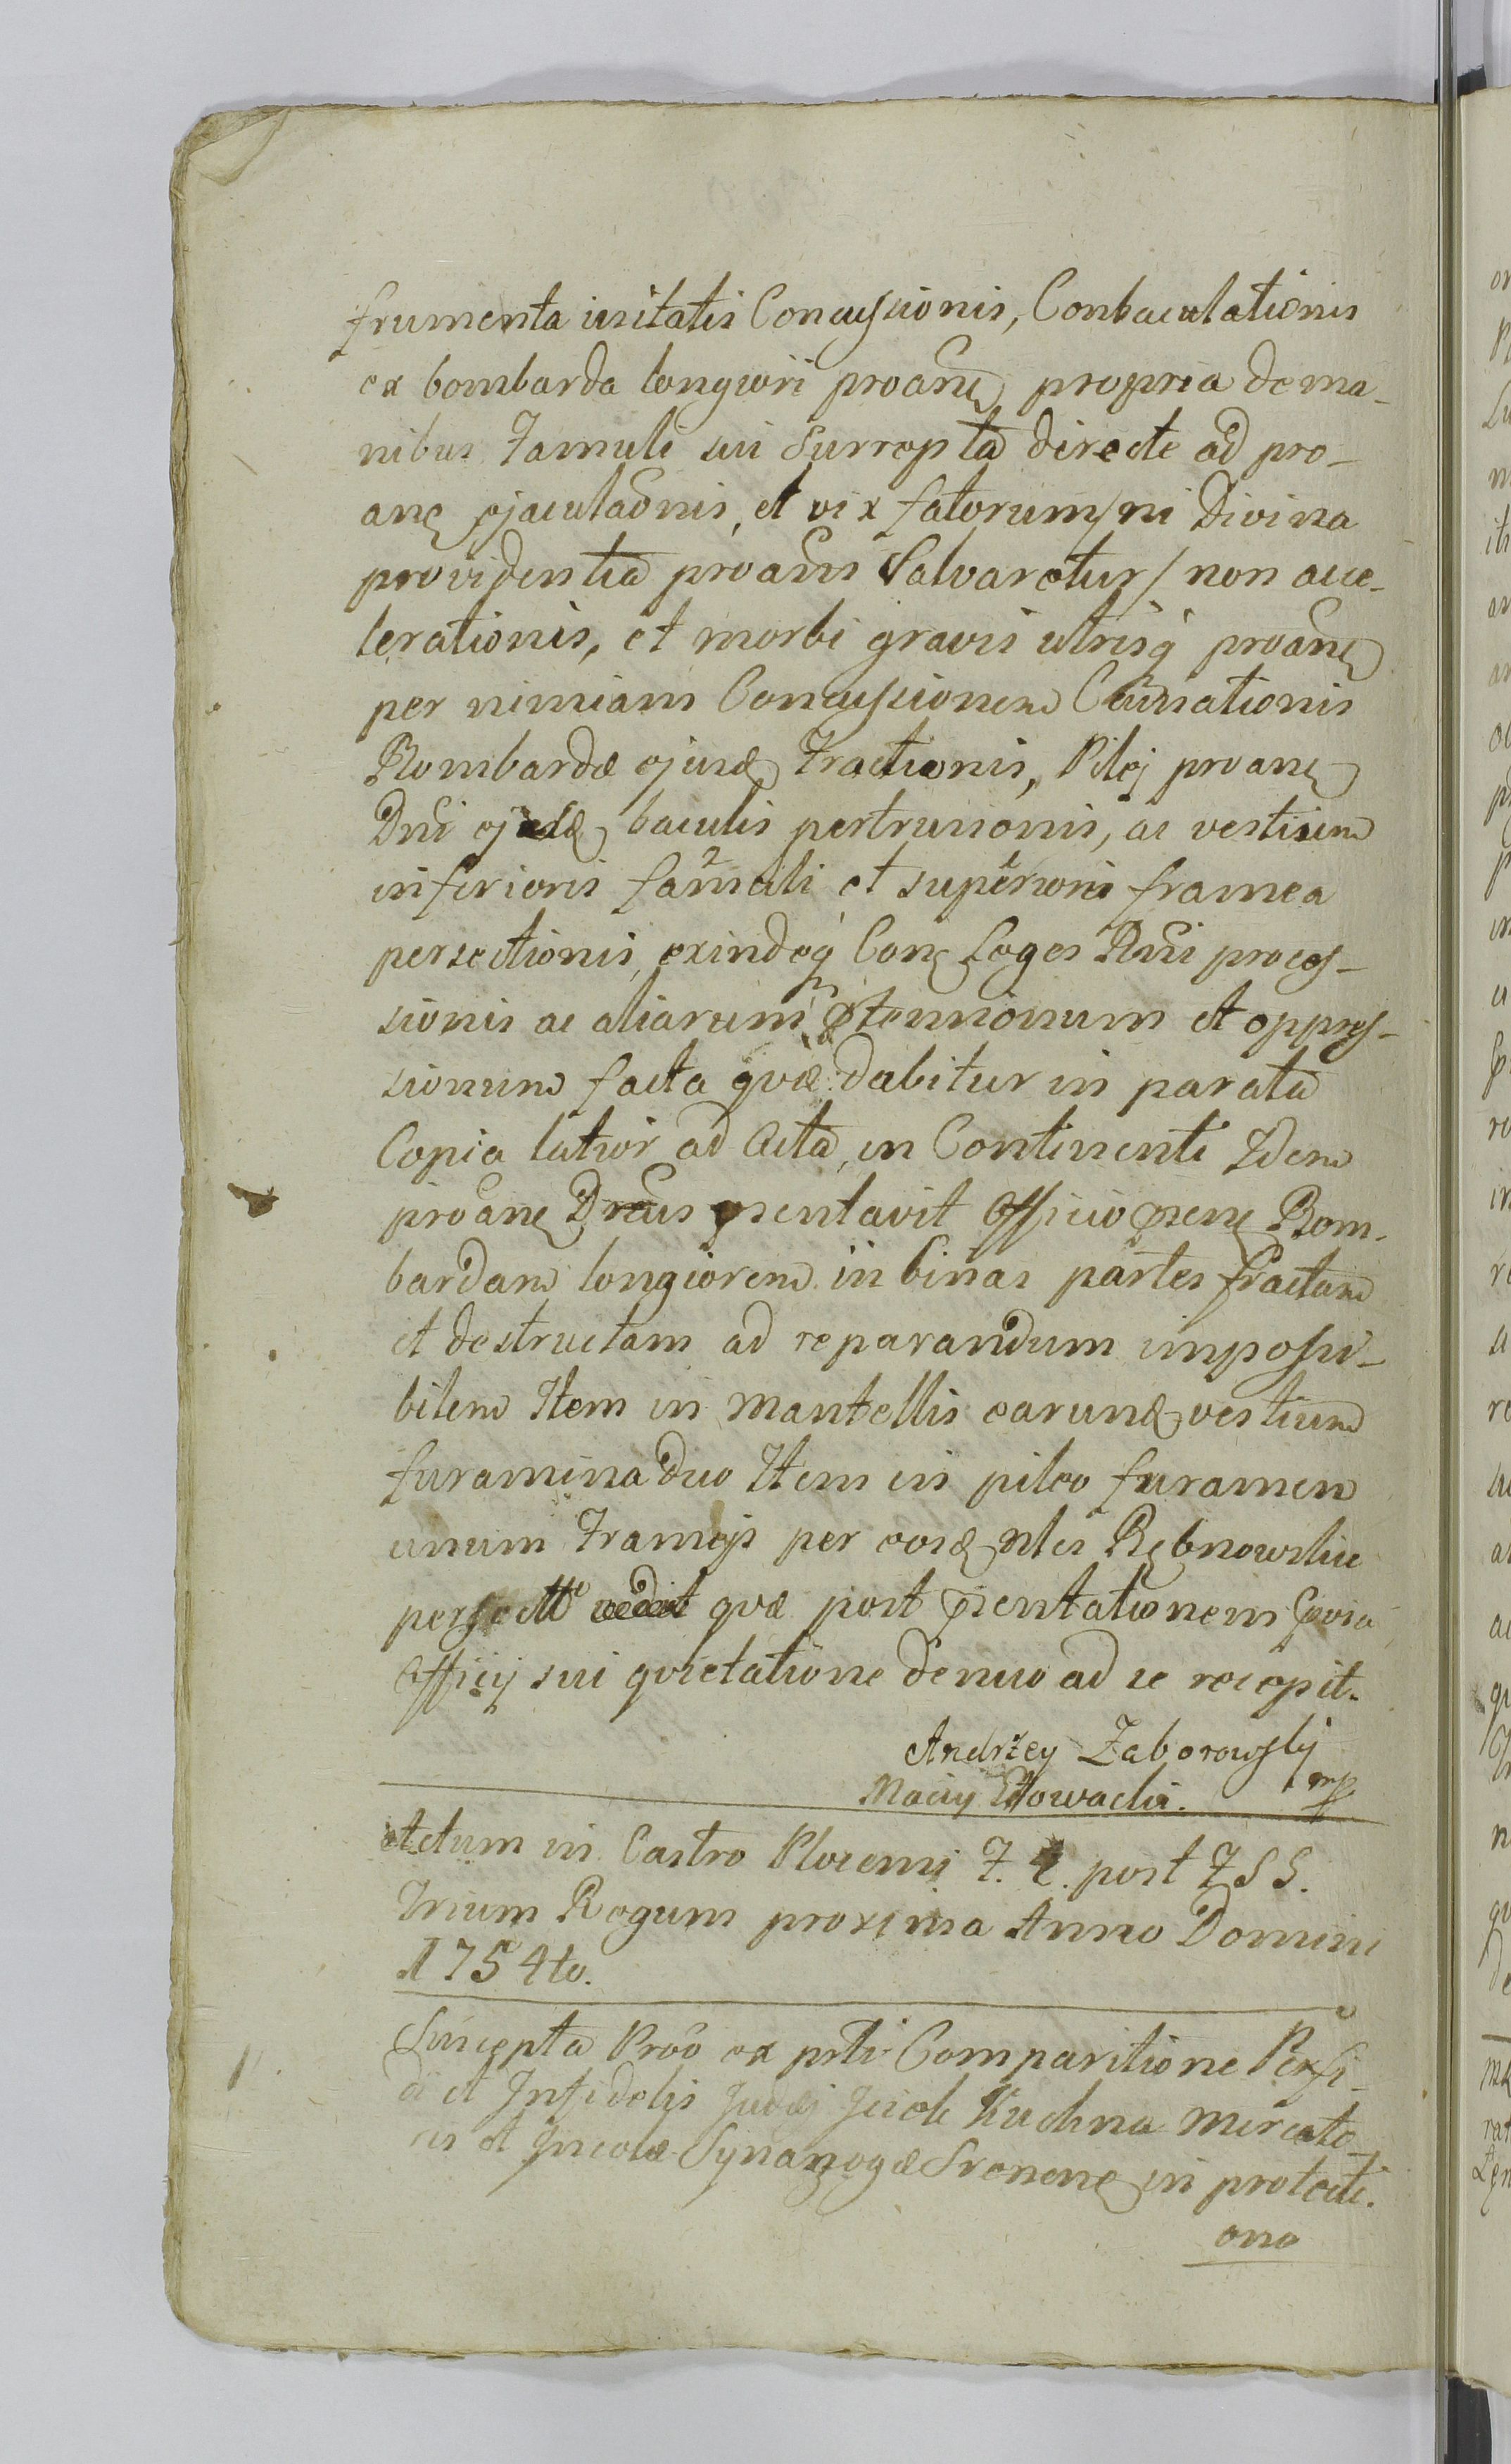 frumenta iusitatis Concussionis, Conbaculationis
ex bombarda longiori proanẽ propria de ma-
nibus Famuli sui Surrepta directe ad pro-
ane ejaculaõnis, et vix fatorum/ni Divina
providentia proanis Salvaretur/ non acce-
lerationis, et morbi gravis utrisq proanẽ
per nimiam Concussionem Causationis
Bombardæ ejusd Fractionis, Pilej proane
Dni ejusd baculis pertrusionis, ac vestium
inferioris famali et superioris framea
persectionis, exindeq Con Leges Rni proces-
sionis ac aliarum ptensionum et oppres-
sionum facta qvæ dabitur in parata
Copia latior ad Acta, in Continenti Idem
proane Dnus psentavit Officio psen Bom-
bardam longiorem in binas partes fractam
et destructam ad reparandum impossi-
bilem Item in mantellis earund vestium
furamina duo Item in pileo furamen
unum Frameis per eosd Nles Rębnowskie
persectte qvæ post psentationem Cora
Officij sui qvietatione denuo ad se recepit.
Andrzey Zaborowsky
mp
Maciy Głowacki.
Actum in Castro Plocensi F. 4. post FSS.
Trium Regum proxima Anno Domini
1754to.
Suscepta Prõõ ex prti Comparitione Perfi-
di et Infidelis Judæi Jacob Kuchna Mercato-
ris et Incolæ Synagogæ Srenene in protecti-
one